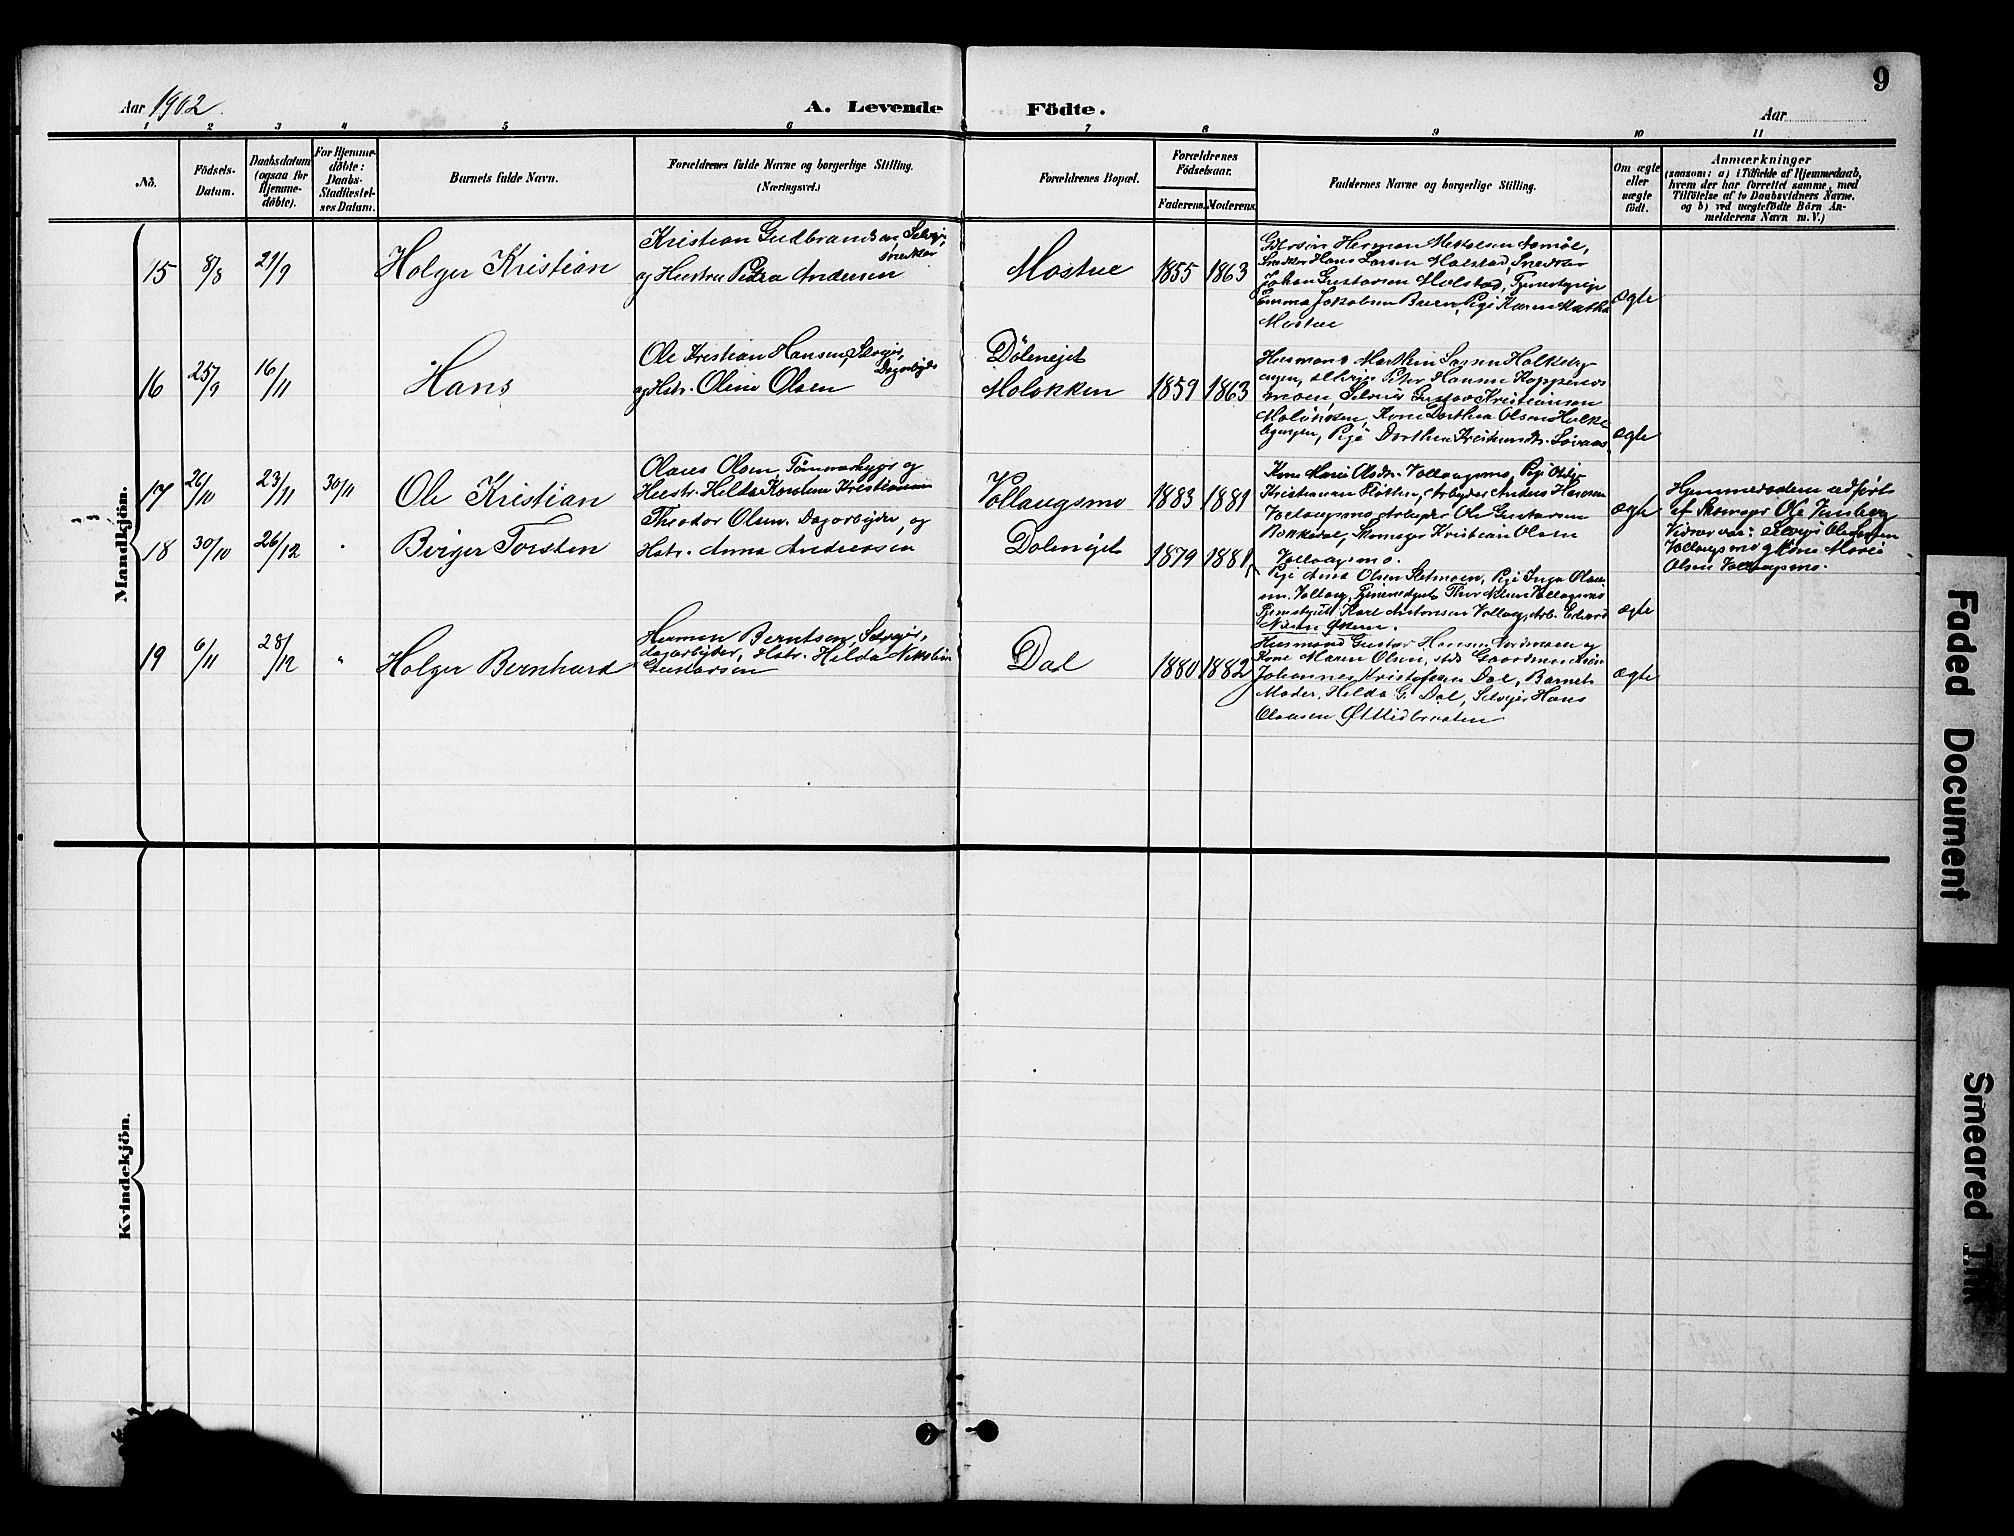 9
Aar 1902. A. Levende Födte. Aar
1 2 3 4 5 6 7 8 9 10 11
No.
Födsels-
Datum.
Daabsdatum
(ogsaa for
Hjemme-
döbte).
For Hjemme-
döbte:
Daabs-
Stadfæstel-
ses Datum.
Barnets fulde Navn.
Forældrenes fulde Navne og borgerlige Stilling.
(Næringsvei.)
Forældrenes Bopæl.
Forældrenes
Födselsaar.
Faderens. Moderens.
Faddernes Navne og borgerlige Stilling.
Om ægte
eller
uægte
födt.
Anmærkninger
(saasom: a) i Tilfælde af Hjemmedaab,
hvem der har forrettet samme, med
Tilföielse af to Daabsvidners Navne,
og b) ved uægtefödte Börn An-
melderens Navn m. V.)
Mandkjön.
15 8/8 21/9 Holger Kristian
Kristian Gudbrandsen, Selveier,
Snedker
og Hustru Petra Andersen
Mostue 1855 1863
Herman
Snedker Hans Larsen Molstad, Snedker
Johan Gustavsen Molstad, Tjenestepige
Emma Jakobsen Buern, Pige Karen
Mostue
ægte
16 25/9 16/11 Hans
Ole Kristian Hansen, Selveier,
Dagarbeider
og Hstr. Oline Olsen
Dölenejet
Moløkken 1859 1863
Husmand Marthin Larsen
Peter Hansen
moen, Selveier Gustav Kristiansen
Moløkken, Kone Dorthea Olsen
Pige Dorthea
ægte
17 26/10 23/11 30/11 Ole Kristian
Olaus Olsen, Tømmerhugger og
Hustr. Hilda Kristiansen
Vollaugsmo 1883 1881
Kone Marie Olsdtr. Vollaugsmo, Pige
Kristiansen Fløtten, Arbeider Anders Hansen
Vollaugsmo, Arbeider Ole Gustavsen
Bakkeval, Skomager Kristian Olsen
Vollaugsmo.
ægte
Hjemmedaaben udført
af Skomager Ole
Vidner var: Selveier Ole Larsen
Vollaugsmo og Kone Marie
Olsen Vollaugsmo.
18 30/10 26/12 " Birger Torsten
Theodor Olsen, Dagarbeider, og
Hstr. Anna Andreasen
Dølenejet 1879 1881
Pige Anna Olsen Sletmoen, Pige Inga Olau-
sen Vollaug, Tjenestegut Thor Nilsen Vollaugsmo
Tjenestgutt Karl Antonsen Vollaug, Arb. Edvard
Økern.
ægte
19 6/11 28/12 " Holger Bernhard
Herman Berntsen, Selveier,
dagarbeider, Hstr. Hilda Nikoline
Gustavsen
Dal 1880 1882
Husmand Gustav Hansen Nordmoen og
Kone Maren Olsen, stds Gaardmandssøn
Johannes Kristofersen Dal, Barnets
Moder, Hilda G. Dal, Selveier Hans
Olausen
ægte
Kvindekjön.
Faded Document
Smeared Ink